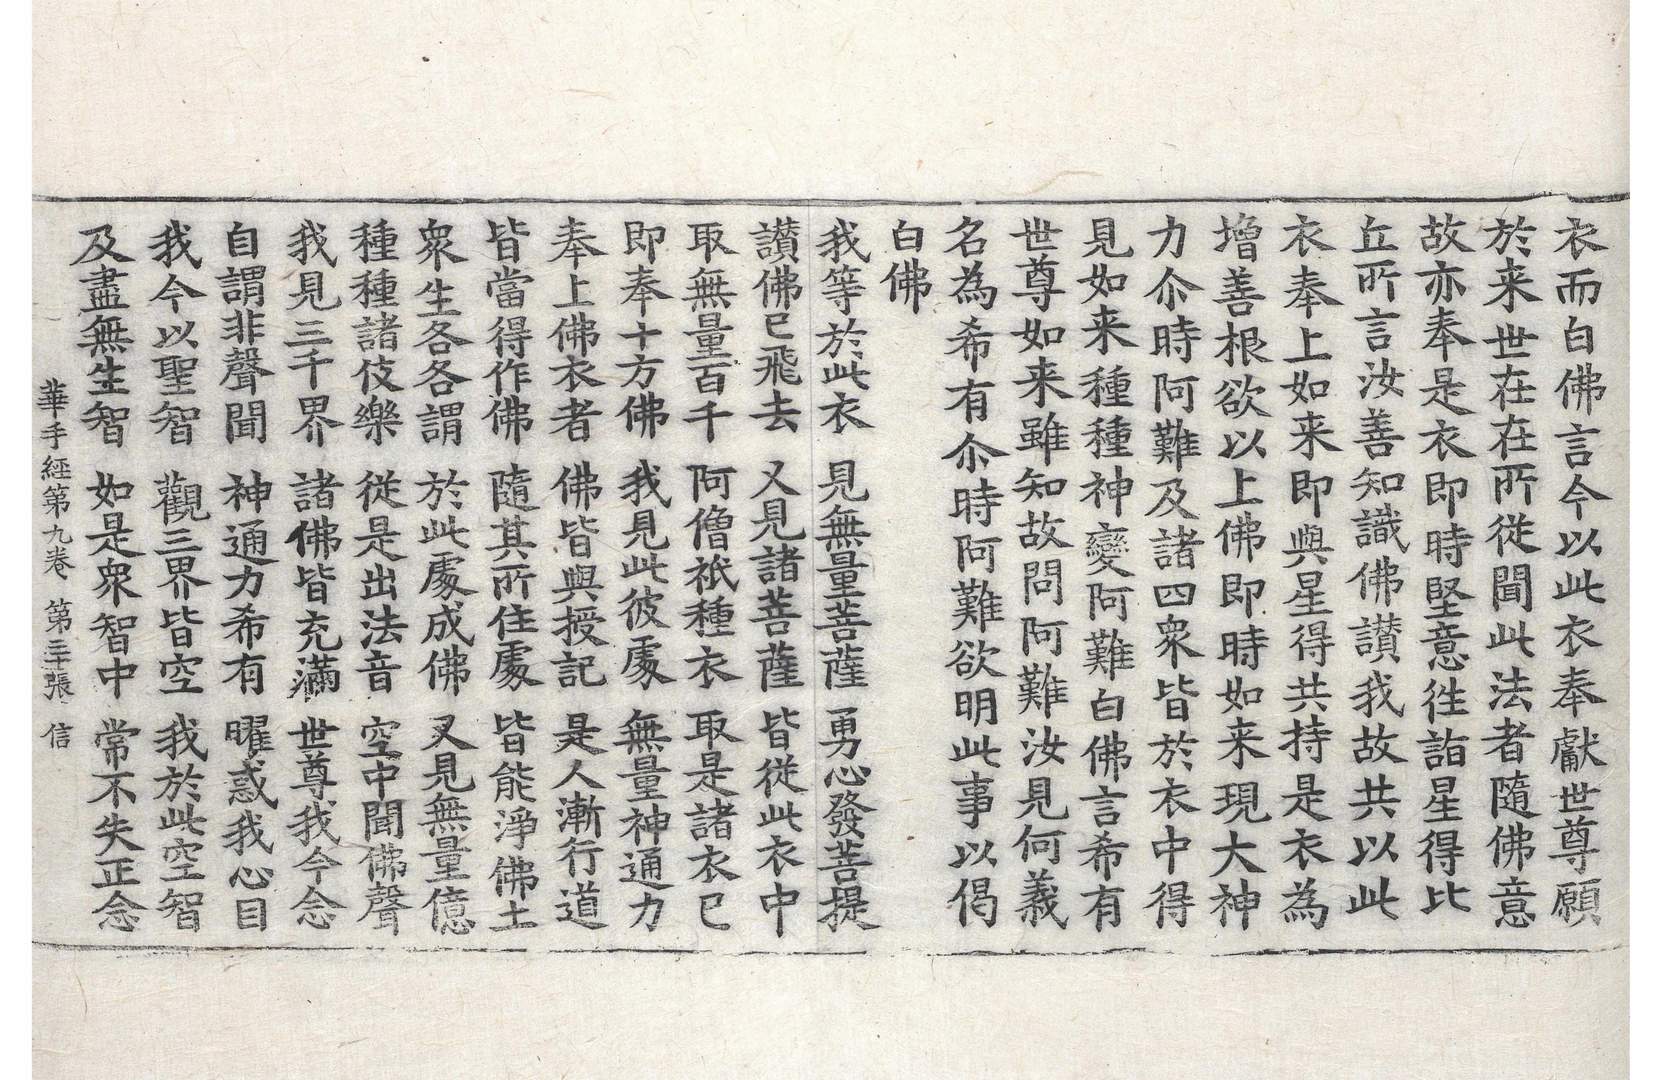 衣而白佛言今以此衣奉獻世尊願
於来世在在所從聞此法者隨佛意
故亦奉是衣即時堅意徃詣星得比
丘所言汝善知識佛讃我故共以此
衣奉上如来即與星得共持是衣為
增善根欲以上佛即時如来現大神
力尒時阿難及諸四衆皆於衣中得
見如来種種神變阿難白佛言希有
世尊如来雖知故問阿難汝見何義
名為希有尒時阿難欲明此事以偈
白佛
我等於此衣　見無量菩薩　勇心發菩提
讃佛已飛去　又見諸菩薩　皆從此衣中
取無量百千　阿僧祇種衣　取是諸衣已
即奉十方佛　我見此彼處　無量神通力
奉上佛衣者　佛皆與授記　是人漸行道
皆當得作佛　隨其所住處　皆能淨佛土
衆生各各謂　於此處成佛　又見無量億
種種諸伎樂　從是出法音　空中聞佛聲
我見三千界　諸佛皆充滿　世尊我今念
自謂非聲聞　神通力希有　曜惑我心目
我今以聖智　觀三界皆空　我於此空智
及盡無生智　如是衆智中　常不失正念
華手經第九卷　第三十張　信